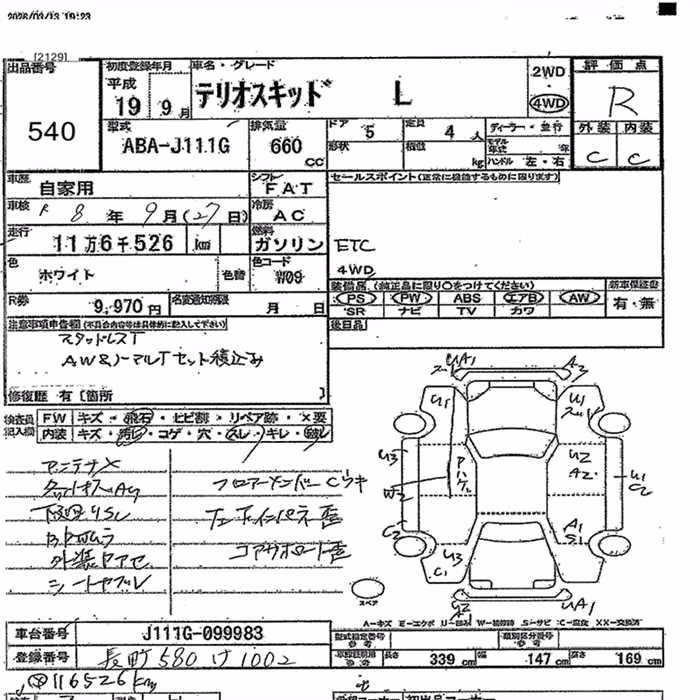 2026/03/13 19:23
[2129]
出品番号 540
初度登録年月 平成 19 9月
車名・グレード テリオスキッド L
2WD 4WD
評価点 R
外装 内装
C C
型式 ABA-J111G
排気量 660 CC
ドア 5
定員 4 人
形状
積載 kg
ディーラー・並行
モデル年式 年
ハンドル 左・右
車歴 自家用
シフト FAT
セールスポイント(正常に機能するものに限ります)
車検 R 8年 9月(27日)
冷房 AC
走行 11万6千526 km
燃料 ガソリン
ETC
4WD
色 ホワイト 色替
色コード W09
装備品(純正品に限り○をつけてください)
新車保証書
PS PW ABS エアB AW
有・無
SR ナビ TV カワ
R券 9,970円
名変通知期限 月 日
後日品
注意事項申告欄(不具合内容等は具体的に記入して下さい)
スタッドレスT
AW&ノーマルTセット積込み
修復歴 有〔箇所 〕
検査員記入欄
FW キズ・飛石・ヒビ割・リペア跡・×要
内装 キズ・汚れ・コゲ・穴・スレ・キレ・破れ
アンテナX
フロアーメンバーCウキ
外装ヤケ
コアサポート歪
シートヤブレ
UA1 A2
U1 U1
U3 U2 A2 U1 C2
W2
C2 A1 S1
U3 C1
U2 UA1
スペア
A-キズ E-エクボ U-凹み W-補修跡 S-サビ C-腐蝕 XX-交換済
車台番号 J111G-099983
型式指定番号 参考
類別区分番号 参考
登録番号 長野 580 け 1002
長さ 339 cm 幅 147 cm 高さ 169 cm
116526 km